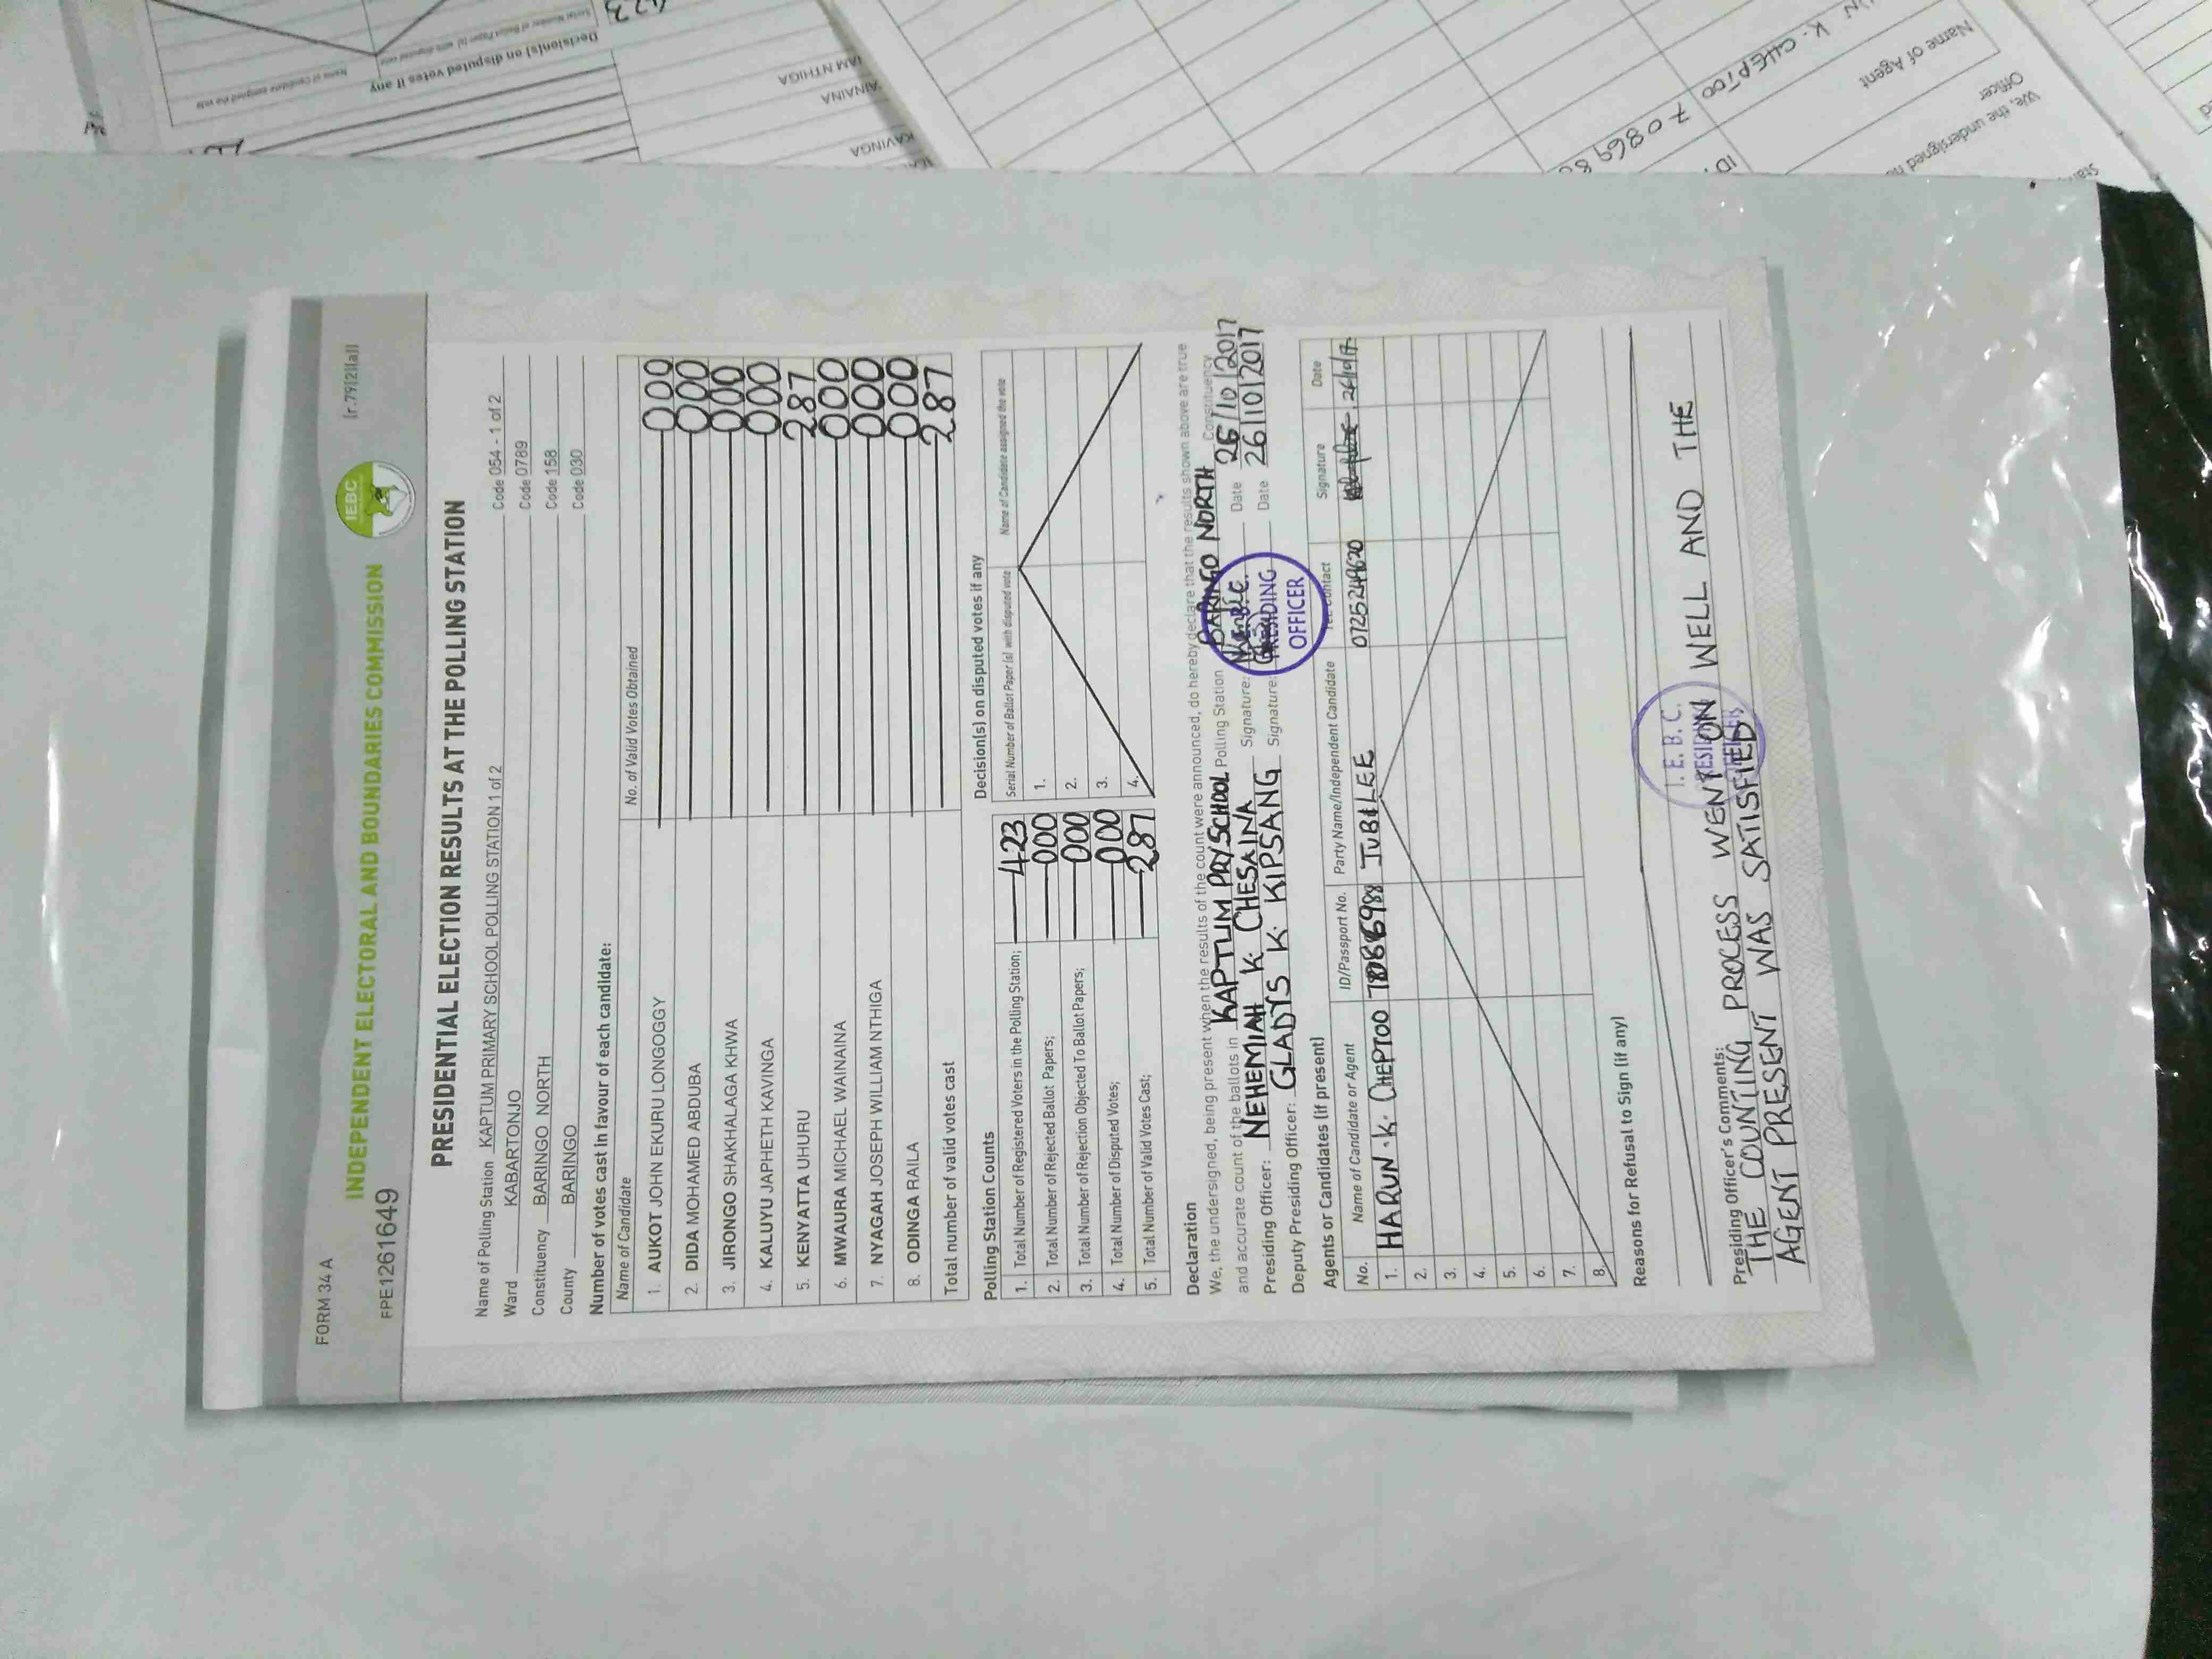 FORM 34 A
[r.79(2)(a)]
IEBC
INDEPENDENT ELECTORAL AND BOUNDARIES COMMISSION
FPE1261649
PRESIDENTIAL ELECTION RESULTS AT THE POLLING STATION
Name of Polling Station KAPTUM PRIMARY SCHOOL POLLING STATION 1 of 2 Code 054 - 1 of 2
Ward KABARTONJO Code 0789
Constituency BARINGO NORTH Code 158
County BARINGO Code 030
Number of votes cast in favour of each candidate:
Name of Candidate No. of Valid Votes Obtained
1. AUKOT JOHN EKURU LONGOGGY 000
2. DIDA MOHAMED ABDUBA 000
3. JIRONGO SHAKHALAGA KHWA 000
4. KALUYU JAPHETH KAVINGA 000
5. KENYATTA UHURU 287
6. MWAURA MICHAEL WAINAINA 000
7. NYAGAH JOSEPH WILLIAM NTHIGA 000
8. ODINGA RAILA 000
Total number of valid votes cast 287
Polling Station Counts
1. Total Number of Registered Voters in the Polling Station; 423
2. Total Number of Rejected Ballot Papers; 000
3. Total Number of Rejection Objected To Ballot Papers; 000
4. Total Number of Disputed Votes; 000
5. Total Number of Valid Votes Cast; 287
Decision(s) on disputed votes if any
Serial Number of Ballot Paper (s) with disputed vote Name of Candidate assigned the vote
1.
2.
3.
4.
Declaration
We, the undersigned, being present when the results of the count were announced, do hereby declare that the results shown above are true
and accurate count of the ballots in KAPTUM PRY SCHOOL Polling Station BARINGO NORTH Constituency
Presiding Officer: NEHEMIAH K. CHESAINA Signature: Date 26/10/2017
Deputy Presiding Officer: GLADYS K. KIPSANG Signature: Date 26/10/2017
PRESIDING
OFFICER
Agents or Candidates (if present)
No. Name of Candidate or Agent ID/Passport No. Party Name/Independent Candidate Tel. Contact Signature Date
1. HARUN K. CHEPTOO JUBILEE
2.
3.
4.
5.
6.
7.
8.
Reasons for Refusal to Sign (if any)
I.E.B.C.
Presiding Officer's Comments:
THE COUNTING PROCESS WENT ON WELL AND THE
AGENT PRESENT WAS SATISFIED
Decision(s) on disputed votes if any
Name of Candidate assigned the vote
423
IAM NTHIGA
AINAINA
KAVINGA
K. CHEPTOO
Name of Agent
Officer
We, the undersigned